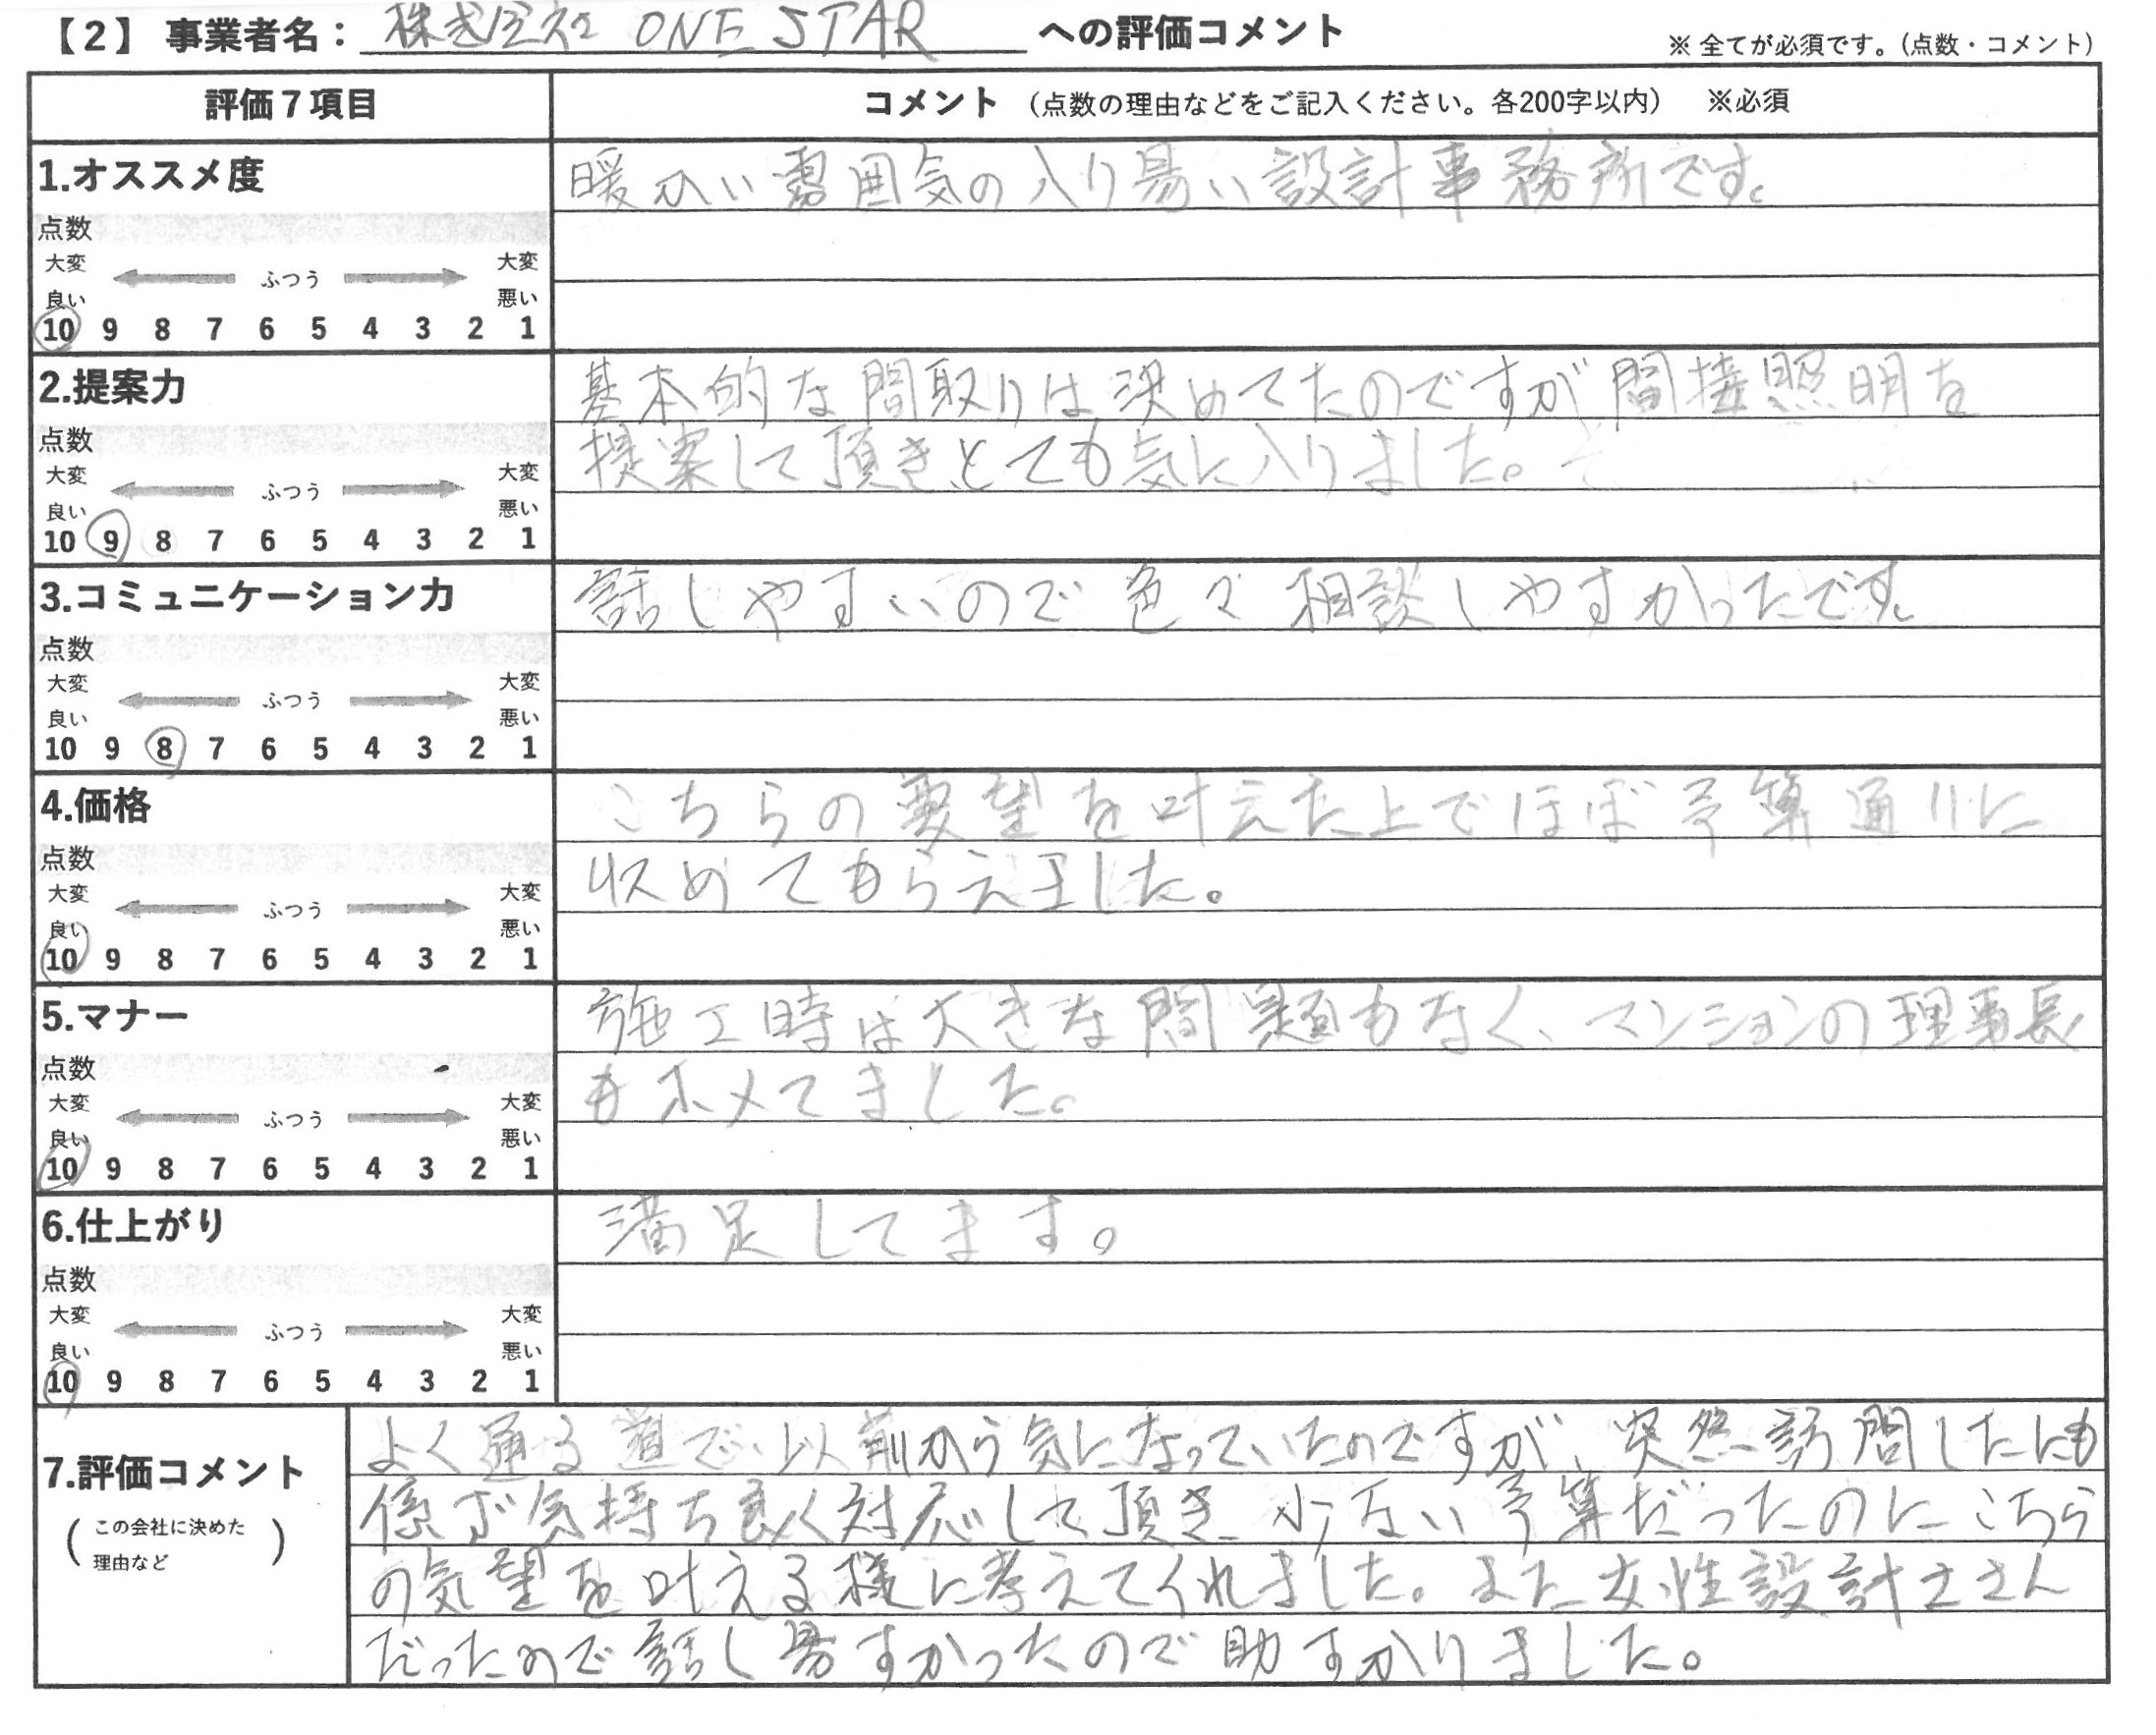 【2】 事業者名：株式会社 ONE STAR への評価コメント
※ 全てが必須です。（点数・コメント）
評価7項目
コメント （点数の理由などをご記入ください。各200字以内） ※必須
1.オススメ度
点数
大変 ふつう 大変
良い 悪い
10 9 8 7 6 5 4 3 2 1
暖かい雰囲気の入り易い設計事務所です。
2.提案力
点数
大変 ふつう 大変
良い 悪い
10 9 8 7 6 5 4 3 2 1
基本的な間取りは決めてたのですが間接照明を
提案して頂きとても気に入りました。
3.コミュニケーション力
点数
大変 ふつう 大変
良い 悪い
10 9 8 7 6 5 4 3 2 1
話しやすいので色々相談しやすかったです。
4.価格
点数
大変 ふつう 大変
良い 悪い
10 9 8 7 6 5 4 3 2 1
こちらの要望を叶えた上でほぼ予算通りに
収めてもらえました。
5.マナー
点数
大変 ふつう 大変
良い 悪い
10 9 8 7 6 5 4 3 2 1
施工時は大きな問題もなく、マンションの理事長
もホメてました。
6.仕上がり
点数
大変 ふつう 大変
良い 悪い
10 9 8 7 6 5 4 3 2 1
満足してます。
7.評価コメント
（この会社に決めた
理由など）
よく通る道で、以前から気になっていたのですが、突然訪問したにも
係ず気持ち良く対応して頂き、少ない予算だったのにこちら
の気望を叶える様に考えてくれました。また女性設計士さん
だったので話し易すかったので助すかりました。